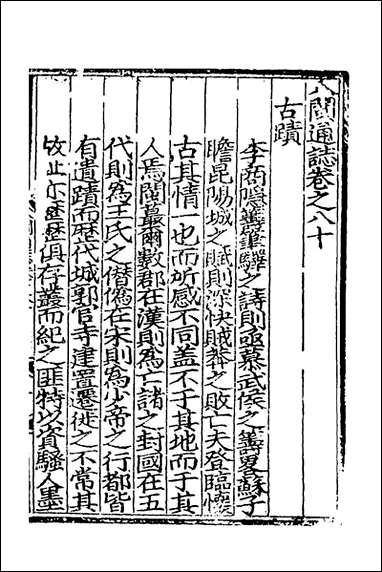 八閩通誌卷之八十
古蹟
李商隱籌筆驛之詩則亟慕武侯之籌畧蘇子
瞻昆陽城之賦則深快賊莽之敗亡夫登臨懷
古其情一也而所感不同盖不于其地而于其
人焉閩蕞爾數郡在漢則為亡諸之封國在五
代則為王氏之僭偽在宋則為少帝之行都皆
有遺蹟而歷代城郭官寺建置遷徙之不常其
故址亦歷歷俱存叢而紀之匪特以資騷人墨